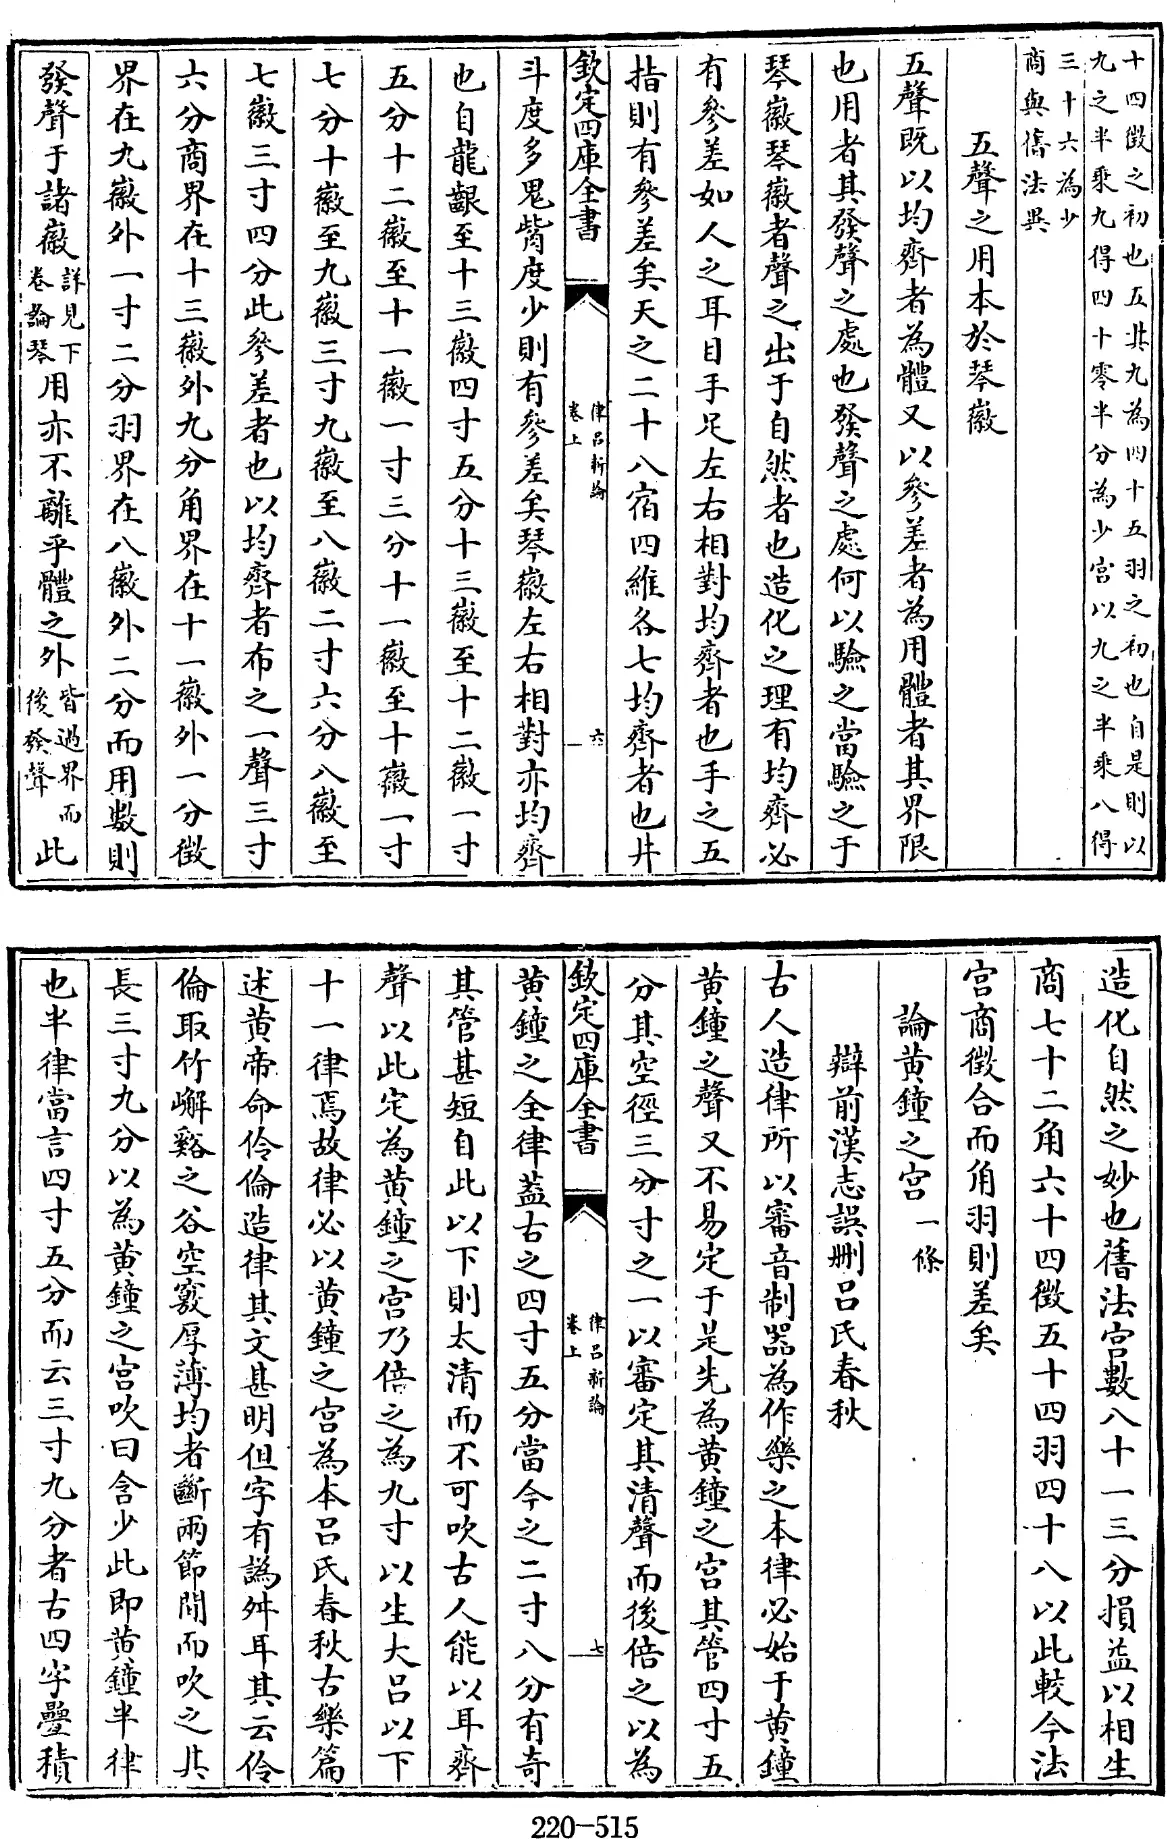 十四徵之初也五其九為四十五羽之初也自是則以
九之半乘九得四十零半分為少宮以九之半乘八得
三十六為少
商與舊法異
五聲之用本於琴徽
五聲既以均齊者為體又以參差者為用體者其界限
也用者其發聲之處也發聲之處何以驗之當驗之于
琴徽琴徽者聲之出于自然者也造化之理有均齊必
有參差如人之耳目手足左右相對均齊者也手之五
指則有參差矣天之二十八宿四維各七均齊者也井
欽定四庫全書
律呂新論
卷上
六
斗度多鬼觜度少則有參差矣琴徽左右相對亦均齊
也自龍齦至十三徽四寸五分十三徽至十二徽一寸
五分十二徽至十一徽一寸三分十一徽至十徽一寸
七分十徽至九徽三寸九徽至八徽二寸六分八徽至
七徽三寸四分此參差者也以均齊者布之一聲三寸
六分商界在十三徽外九分角界在十一徽外一分徵
界在九徽外一寸二分羽界在八徽外二分而用數則
發聲于諸徽詳見下卷論琴用亦不離乎體之外皆過界而後發聲此
造化自然之妙也舊法宮數八十一三分損益以相生
商七十二角六十四徵五十四羽四十八以此較今法
宮商徵合而角羽則差矣
論黃鐘之宮一條
辯前漢志誤刪呂氏春秋
古人造律所以審音制器為作樂之本律必始于黃鐘
黃鐘之聲又不易定于是先為黃鐘之宮其管四寸五
分其空徑三分寸之一以審定其清聲而後倍之以為
欽定四庫全書
律呂新論
卷上
七
黃鐘之全律葢古之四寸五分當今之二寸八分有奇
其管甚短自此以下則太清而不可吹古人能以耳齊
聲以此定為黃鐘之宮乃倍之為九寸以生大呂以下
十一律焉故律必以黃鐘之宮為本呂氏春秋古樂篇
述黃帝命伶倫造律其文甚明但字有譌舛耳其云伶
倫取竹嶰谿之谷空竅厚薄均者斷兩節間而吹之其
長三寸九分以為黃鐘之宮吹曰含少此即黃鐘半律
也半律當言四寸五分而云三寸九分者古四字疊積
220-515